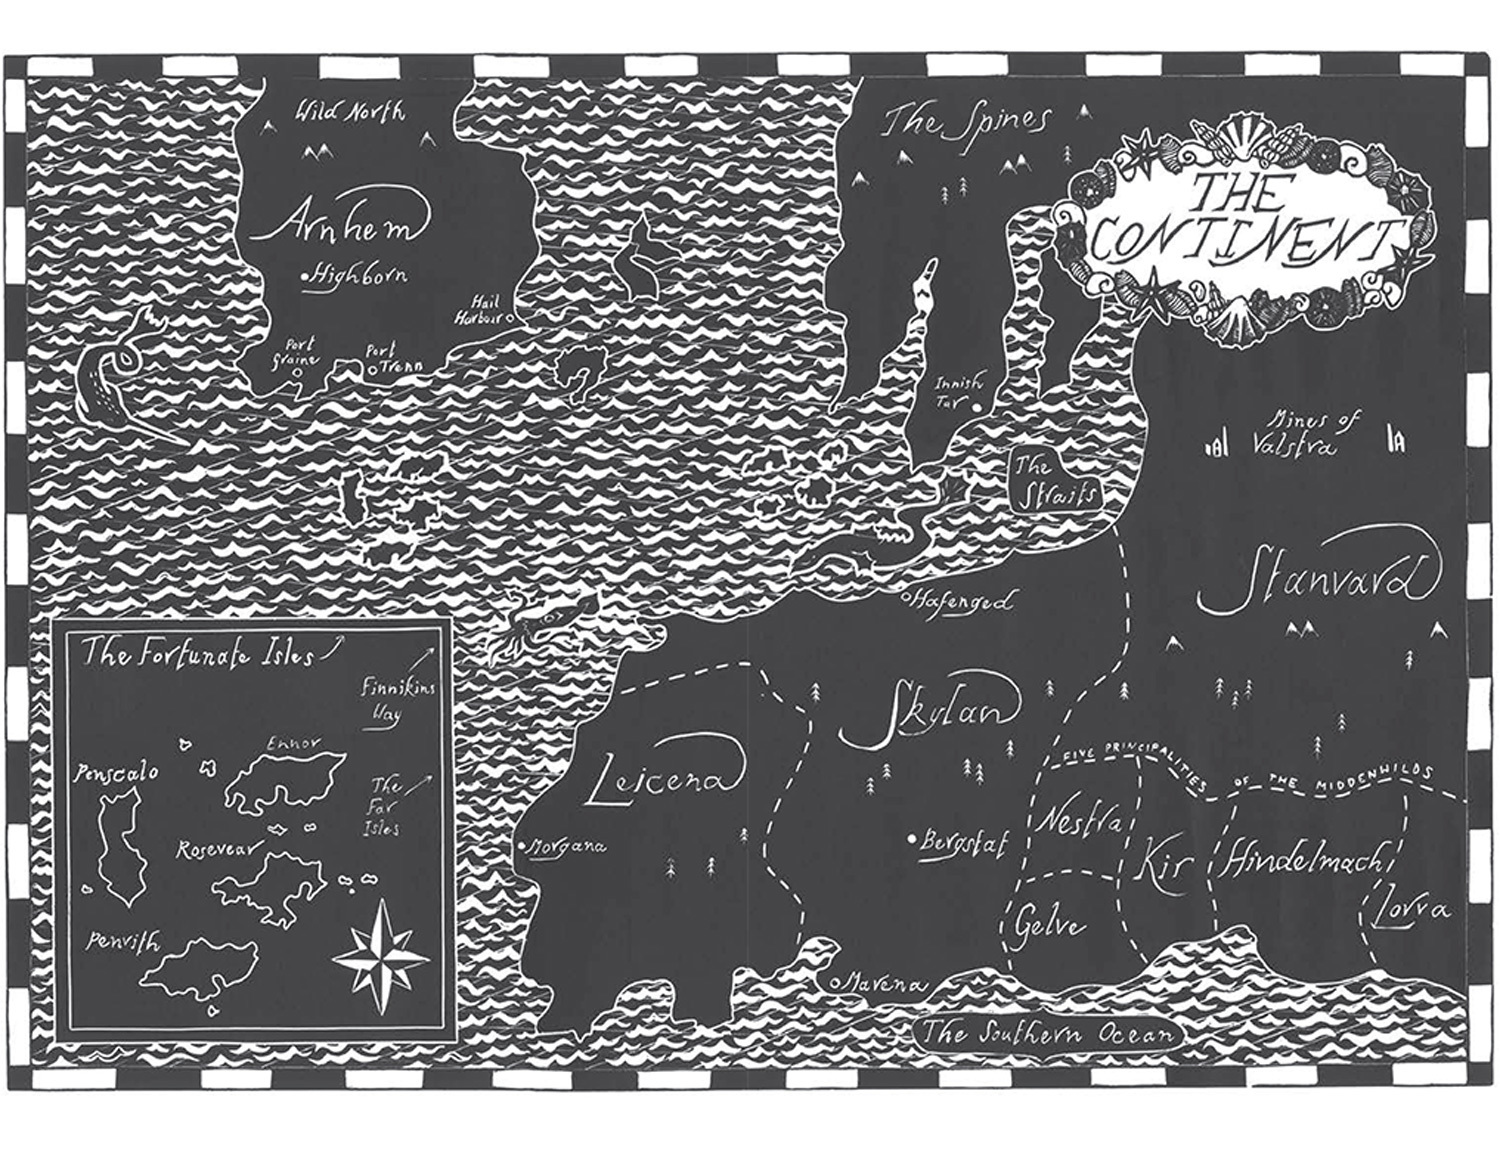 Wild North
Arnhem
Highborn
Hail
Harbour
Port
Graine
Port
Trenn
The Spines
THE
CONTINENT
Innish
Tar
The
Straits
Mines of
Valstra
Stanvard
Hafenged
Skylan
Leicena
Morgana
Bergstat
FIVE PRINCIPALITIES OF THE MIDDENWILDS
Nestra
Kir
Hindelmach
Lorra
Gelve
Mavena
The Southern Ocean
The Fortunate Isles
Finnikins
Way
Ennor
Penscalo
The
Far
Isles
Rosevear
Penvith